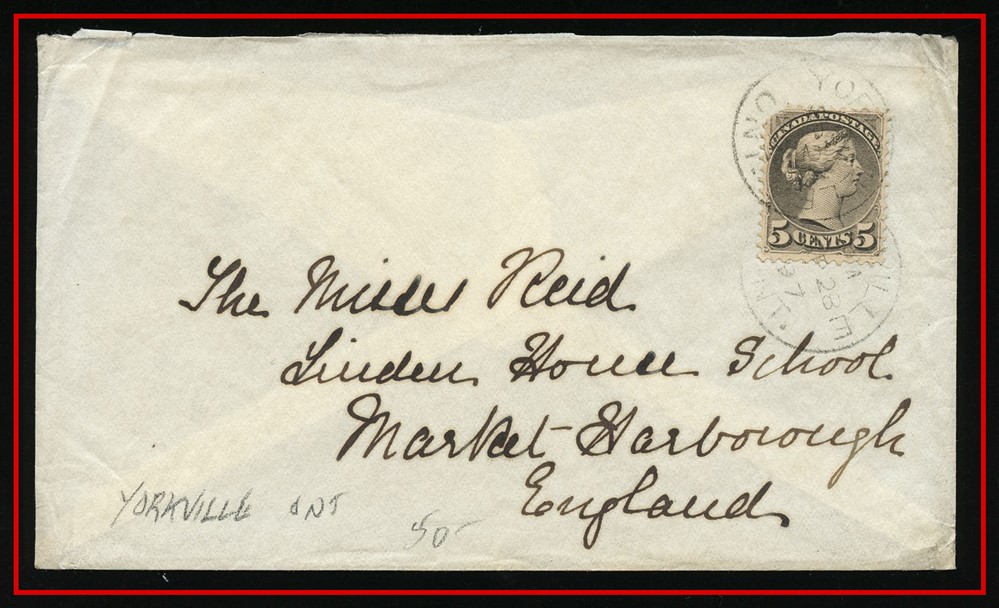 CANADA POSTAGE
5 CENTS 5
The Misses Reid
Linden House School
Market Harborough
England
YORKVILLE ONT
50-